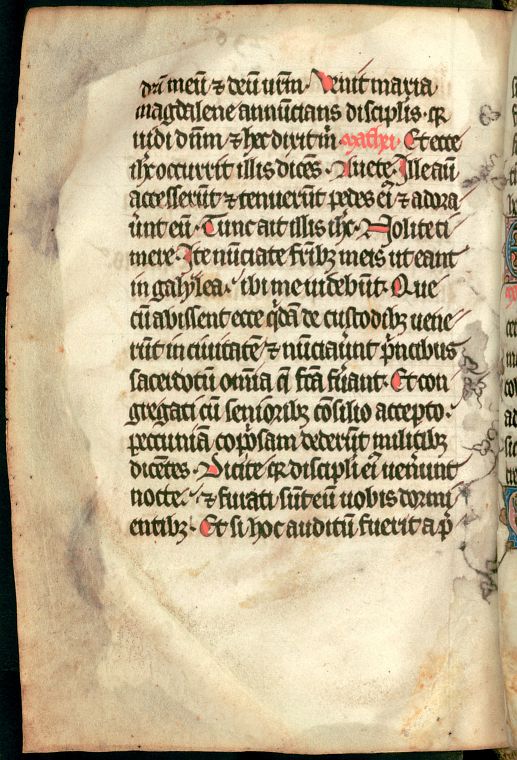 dm̄ meū ⁊ deū urm̄. Venit maria
magdalene annūcians disciplis. qꝛ
uidi dūm ⁊ hec dixit m̄ mathei. Et ecce
ihc occurrit illis dicēs. Auete. Ille aū
accesserūt ⁊ tenuerūt pedes eī ⁊ adora
ūnt eū. Tunc ait illis ihc. Nolite ti
mere. Ite nūciate frībꝫ meis ut eant
in galylea. ibi me uidebūt. Que
cū abissent ecce qͥdā de custodibꝫ uene
rūt in ciuitatē ⁊ nūciaūnt pͥncibus
sacerdotū omīa q̄ fc̄a fūant. Et con
gregati cū senioribꝫ cōsilio accepto.
peccuniā copͥosam dederūt militibꝫ
dicētes. Dicite qꝛ discipli eī ueneūnt
nocte. ⁊ furati sūt eū uobis dormi
entibꝫ. Et si hoc auditū fuerit a p̄